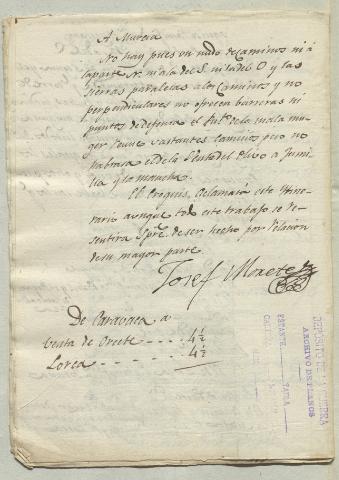 A Murcia
No hay pues un nudo de caminos ni á
la parte N. ni á la del S. ni la del O y las
sierras paralelas a los Caminos y no
perpendiculares no ofrecen barreras ni
puntos de defensa el Pto. de la mala mu-
ger reune bastantes caminos pero no
el de la Venta del Olivo a Jumi-
lla y la mancha.
El Croquis, aclamará este Itine-
rario aunque todo este trabajo se re-
sentira Spre. de ser hecho por relacion
de su mayor parte
Josef Moxete
De Caravaca a
Venta de Orcete - - - - 4½
Lorca - - - - - 4½
DEPOSITO DE LA GUERRA
ARCHIVO DE PLANOS
ESTANTE TABLA